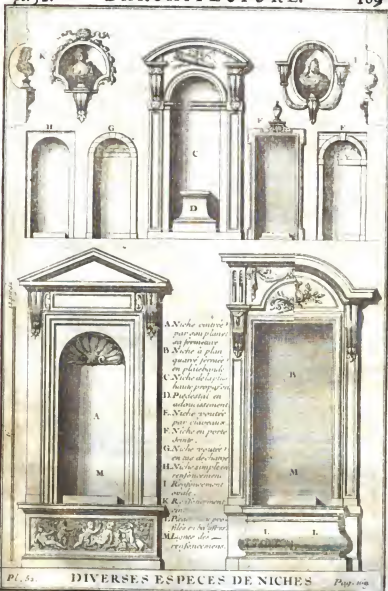 D'ARCHITECTURE. 169
K
I
H
G
C
F
E
D
A Niche cintrée
par son plan et
sa fermeture
B Niche à plan
quarré fermée
en platebande
C Niche de la plus
haute proportion
D Piédestal en
adoucissement
E Niche voutée
par claveaux.
F Niche en porte
feinte.
G Niche voutée
en tas de charge
H Niche simple en
renfoncement
I Renfoncement
ovale.
K Renfoncement
L
M
renfoncemens.
A
M
B
M
L L
Pl. 51. DIVERSES ESPECES DE NICHES Pag.